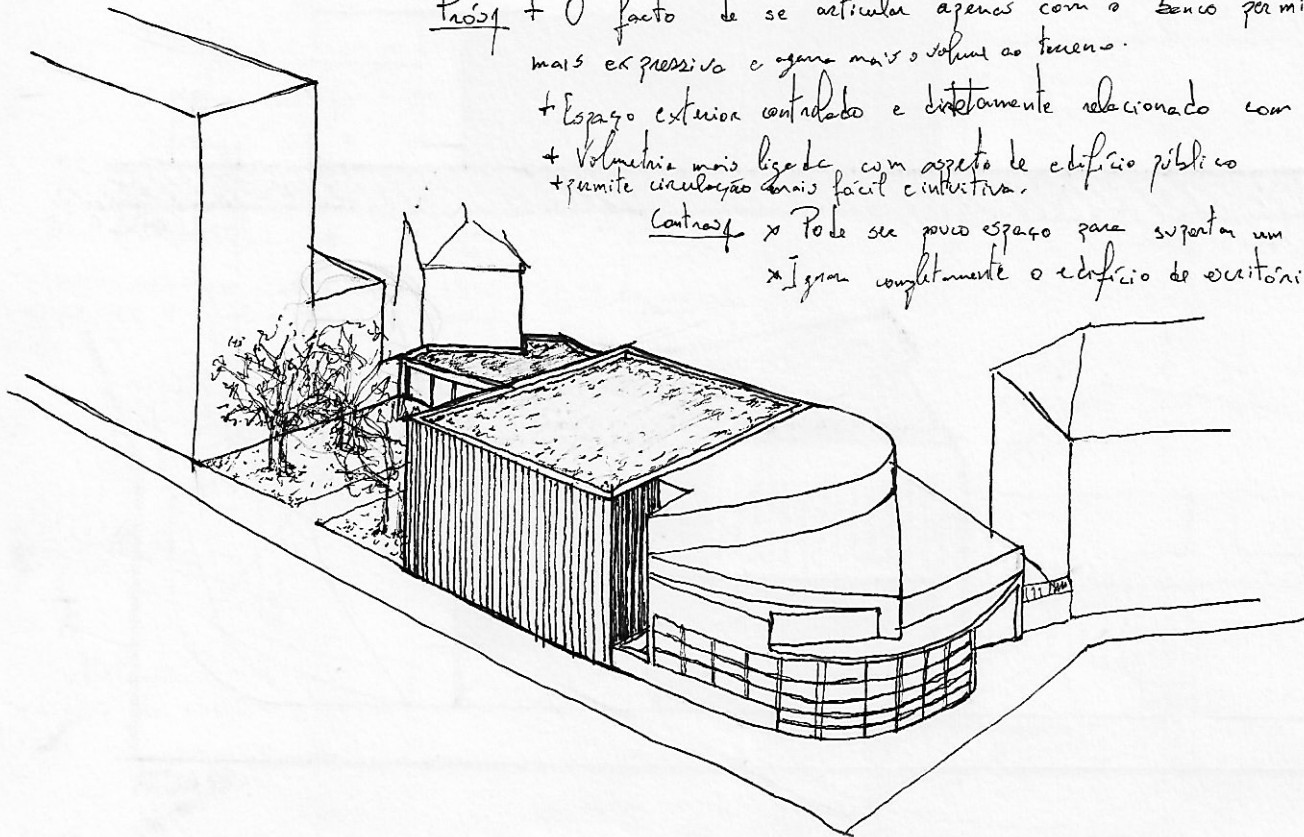 Prós + O facto de se articular apenas com o banco permi
mais expressiva e agarra mais o volume ao terreno.
+ Espaço exterior controlado e diretamente relacionado com
+ Volumetria mais ligada com aspeto de edifício público
+ permite circulação mais fácil e intuitiva.
Contras x Pode ser pouco espaço para suportar um
x Ignora completamente o edifício de escritóri